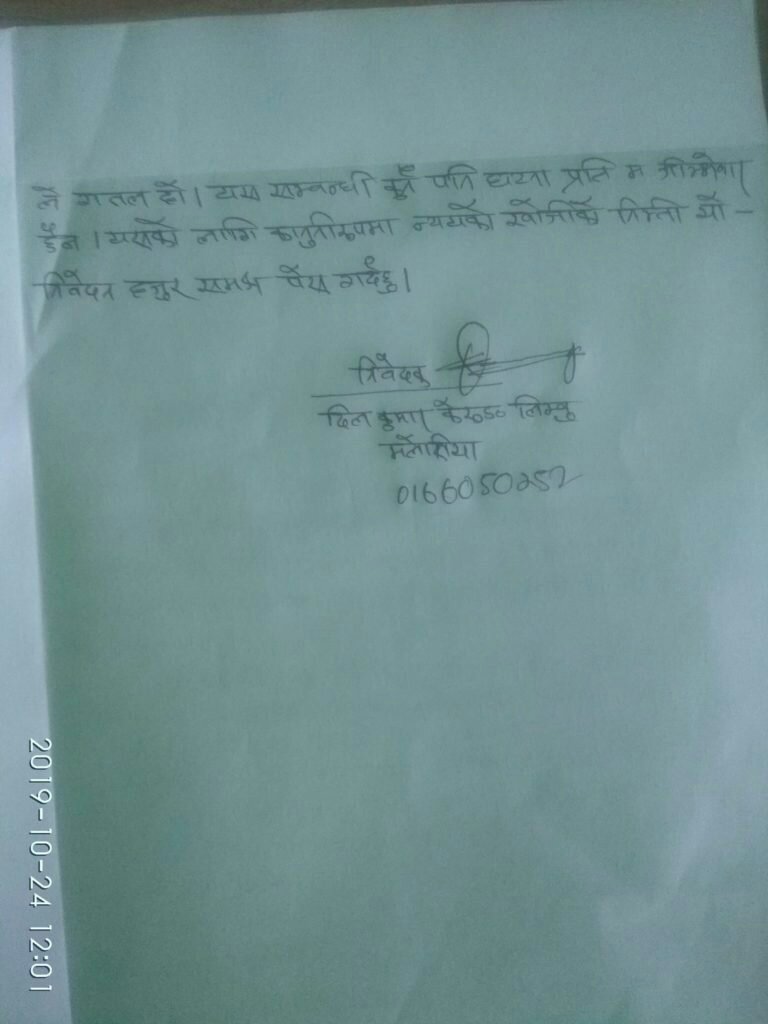 ले गलत हो। यस सम्बन्धी कुनै पनि घटना प्रति म जिम्मेवार
छैन। यसको लागि कानुनीरूपमा न्ययको खोजीको निम्ती यो -
निवेदन हजुर समक्ष पेस गर्दछु।
निवेदक
दिल कुमार लिम्बु
0166050252
2019-10-24 12:01